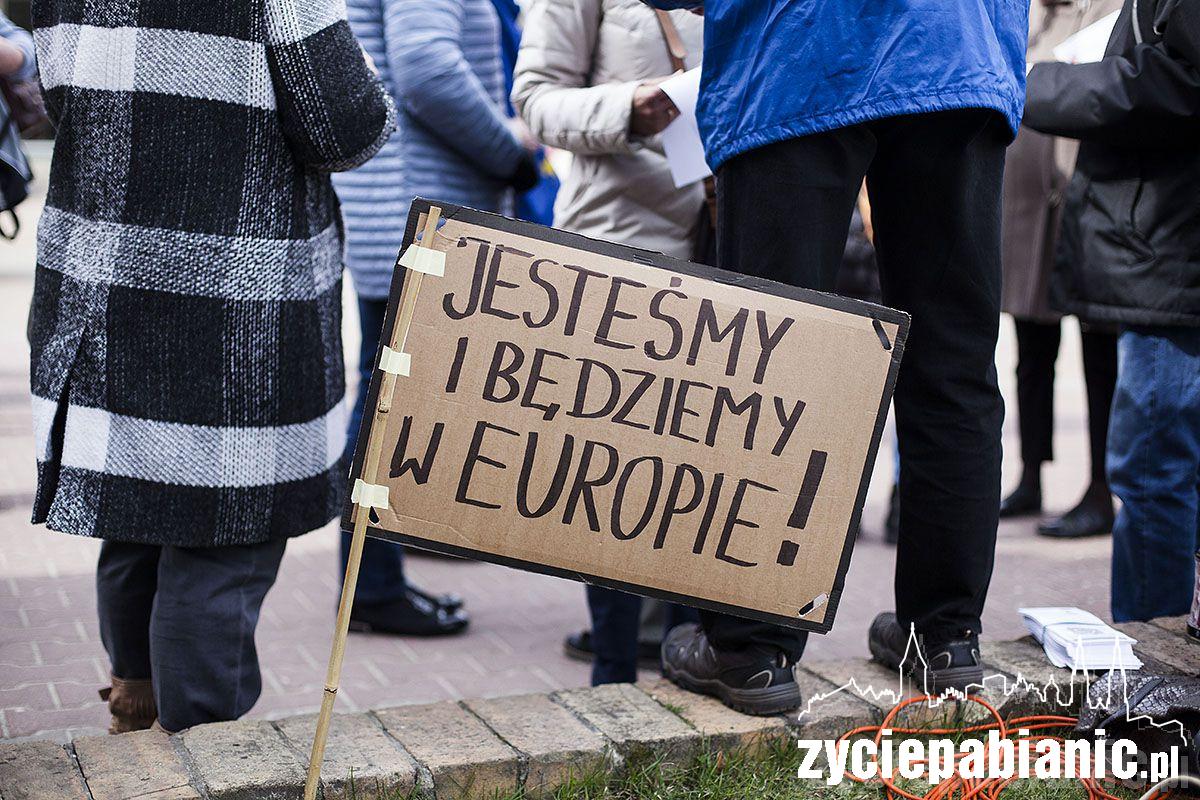 JESTEŚMY
I BĘDZIEMY
W EUROPIE!
zyciepabianic.pl